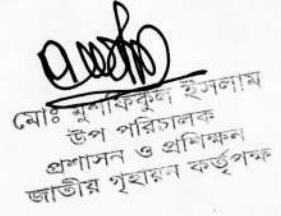 মোঃ মুশফিকুল ইসলাম
উপ পরিচালক
প্রশাসন ও প্রশিক্ষন
জাতীয় গৃহায়ন কর্তৃপক্ষ